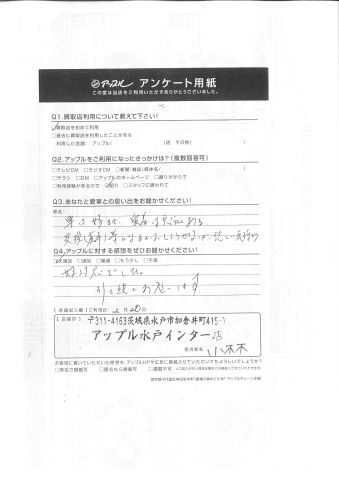 アップル アンケート用紙
この度は当店をご利用いただきありがとうございました。
Q1.買取店利用について教えて下さい!
買取店を初めて利用
□過去に買取店を利用したことがある
利用した店舗 アップル( )店 その他( )
Q2.アップルをご利用になったきっかけは?(複数回答可)
□テレビCM □ラジオCM □新聞・雑誌(媒体名/ )
□チラシ □DM □アップルのホームページ □通りがかりで
□利用経験があるので 紹介 □スタッフに誘われて
Q3.あなたと愛車との思い出をお聞かせください!
車名:
Q4.アップルに対する感想をぜひお聞かせください!
大満足 □満足 □普通 □もう少し □不満
好対応でした。
引き続きお願いします
【店舗記入欄】【ご利用日: 2月20日】
【店舗印】
〒311-4163茨城県水戸市加倉井町415-1
アップル水戸インター店
担当者名
お客様に書いていただいた感想を、アップルHPや広告に掲載させていただいてもよろしいでしょうか?
□実名で掲載可 □匿名なら掲載可 □掲載不可